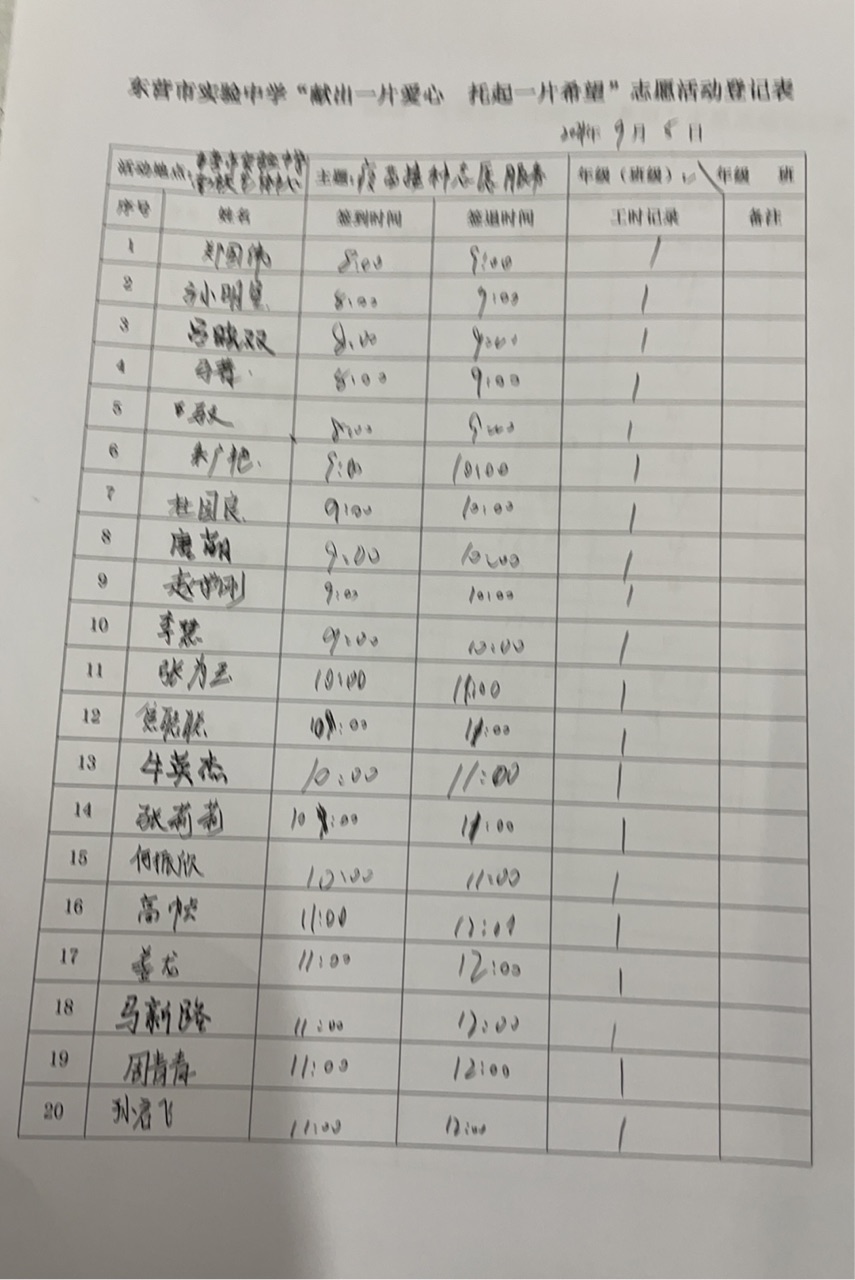 东营市实验中学“献出一片爱心 托起一片希望”志愿活动登记表
9月8日
活动地点: 主题:疫苗接种志愿服务 年级（班级）: 年级 班
序号 姓名 签到时间 签退时间 工时记录 备注
1 郑国伟 8:00 9:00 1
2 8:00 9:00 1
3 8:00 9:00 1
4 8:00 9:00 1
5 8:00 9:00 1
6 9:00 10:00 1
7 杜国良 9:00 10:00 1
8 9:00 10:00 1
9 9:00 10:00 1
10 李慧 9:00 10:00 1
11 张为玉 10:00 11:00 1
12 10:00 11:00 1
13 牛英杰 10:00 11:00 1
14 张莉莉 10:00 11:00 1
15 何振欣 10:00 11:00 1
16 11:00 12:00 1
17 11:00 12:00 1
18 马新隆 11:00 12:00 1
19 周青青 11:00 12:00 1
20 孙君飞 11:00 12:00 1